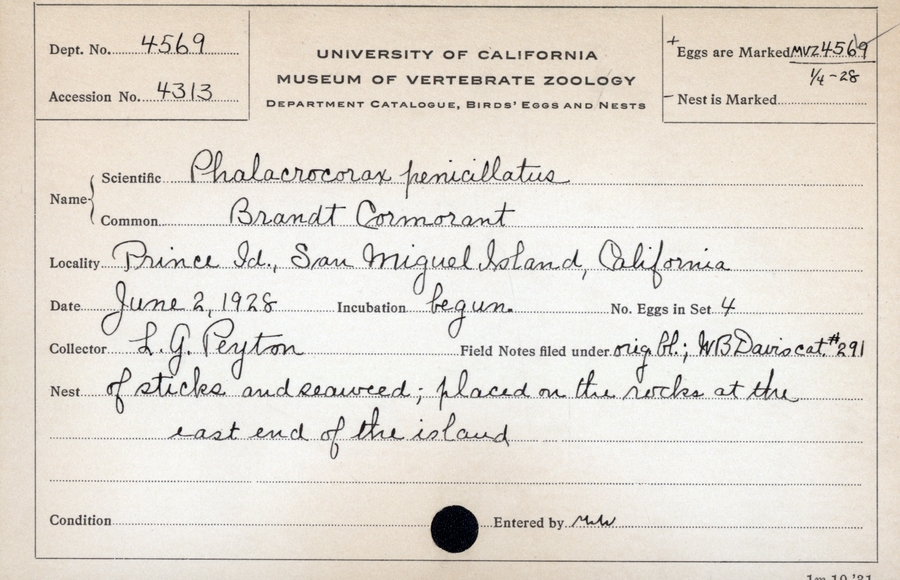 Dept. No. 4569
Accession No. 4313
UNIVERSITY OF CALIFORNIA
MUSEUM OF VERTEBRATE ZOOLOGY
DEPARTMENT CATALOGUE, BIRDS' EGGS AND NESTS
+ Eggs are Marked MVZ 4569
1/4-28
- Nest is Marked
Name
Scientific Phalacrocorax penicillatus
Common Brandt Cormorant
Locality Prince Id., San Miguel Island, California
Date June 2, 1928 Incubation begun. No. Eggs in Set 4
Collector L. G. Peyton Field Notes filed under orig. bl.; WB Davis cat. #291
Nest of sticks and seaweed; placed on the rocks at the
east end of the island
Condition Entered by
1m 10 '31